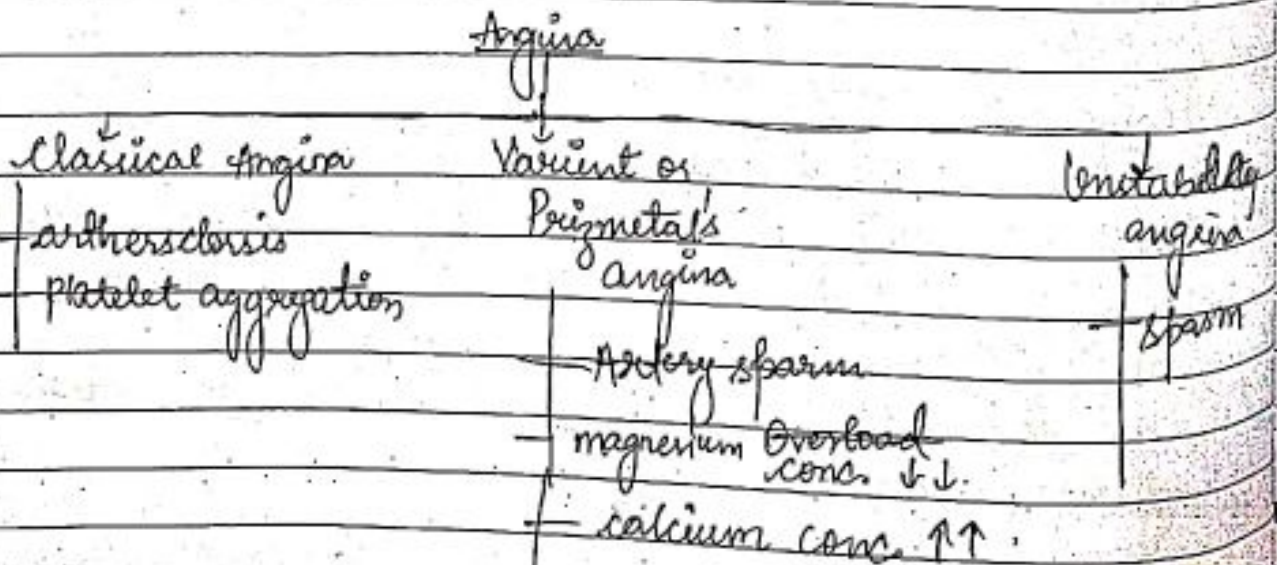 Angina
Classical Angina
arthersclorsis
Platelet aggregation
Varient or
Prizmetal's
angina
Artery sparm
magnesium Overload
conc. ↓↓.
calcium conc. ↑↑.
Unstability
angina
spasm